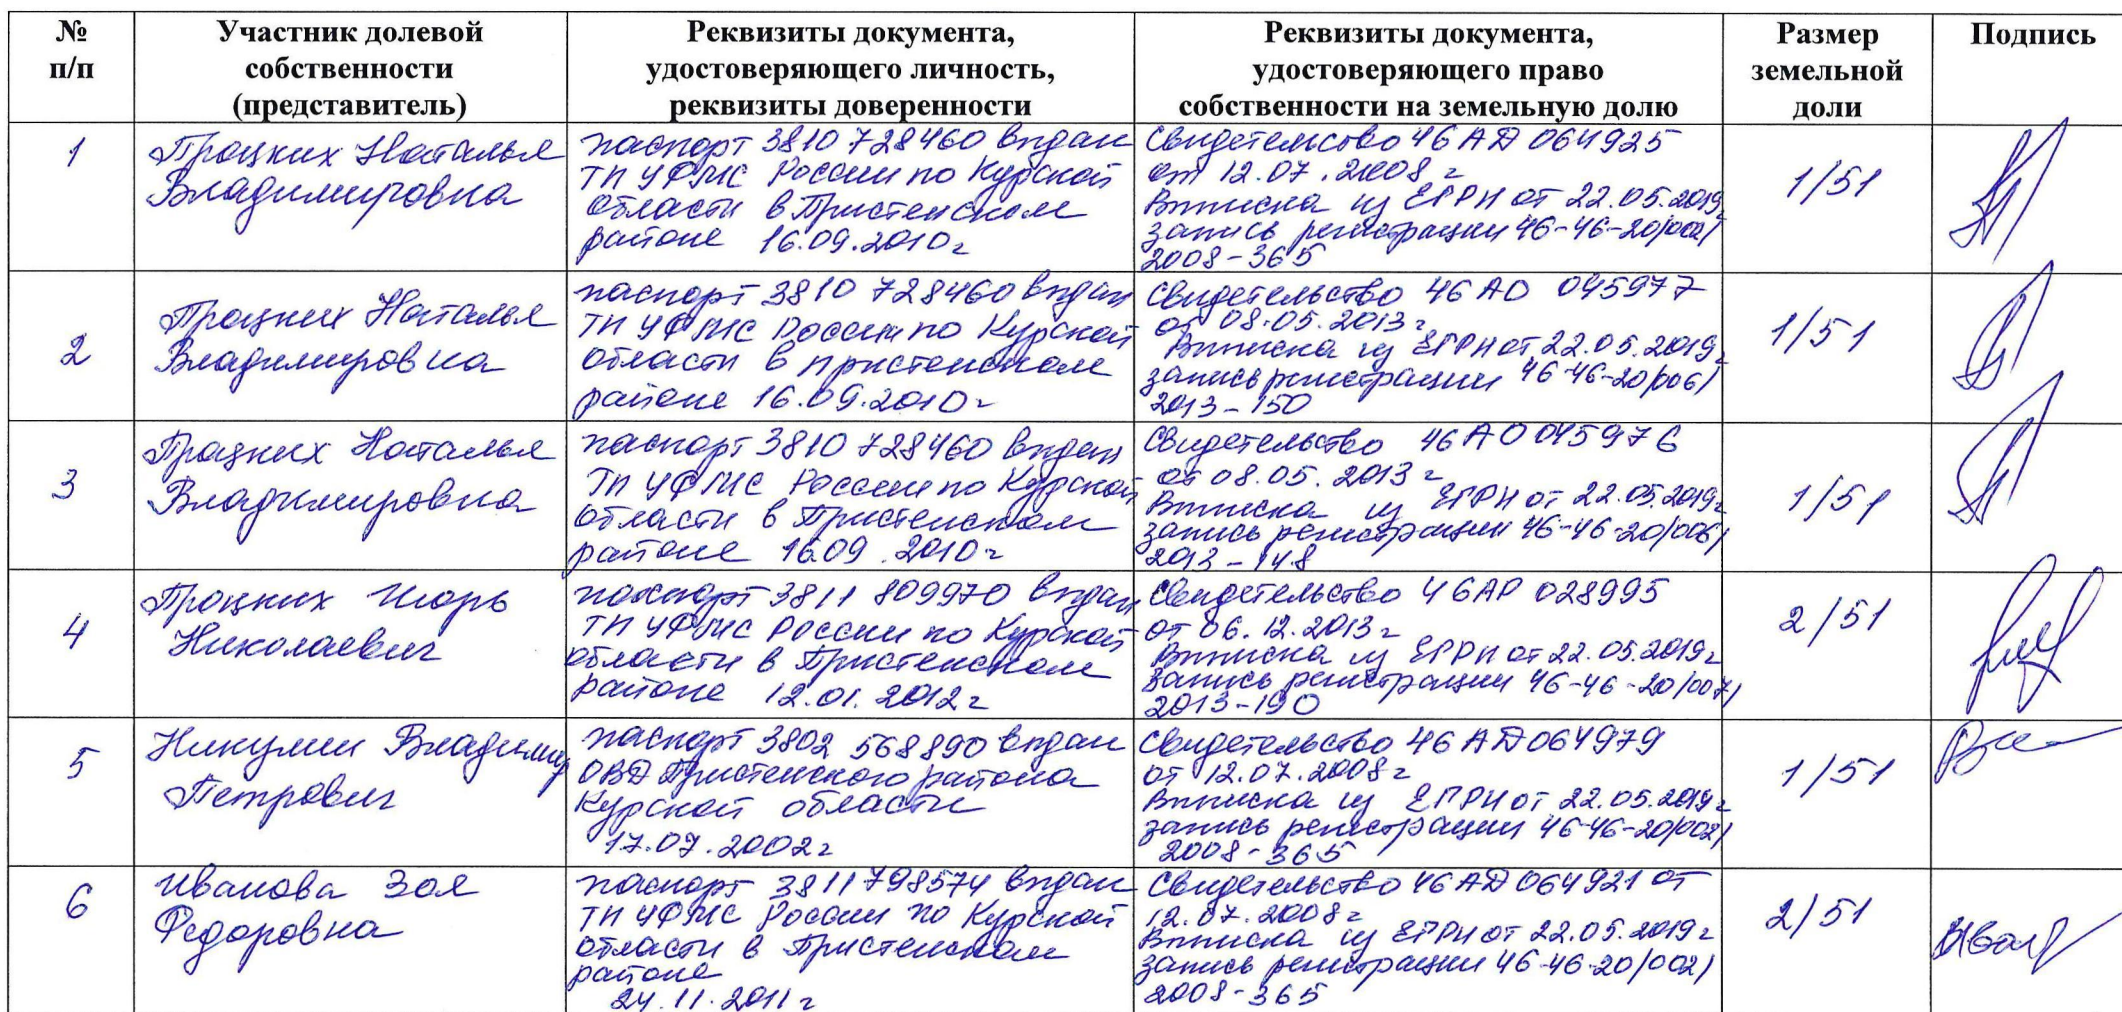 № п/п
Участник долевой собственности (представитель)
Реквизиты документа, удостоверяющего личность, реквизиты доверенности
Реквизиты документа, удостоверяющего право собственности на земельную долю
Размер земельной доли
Подпись
1
Троцких Наталья
Владимировна
паспорт 3810 728460 выдан
ТП УФМС России по Курской
области в Пристенском
районе 16.09.2010г
Свидетельство 46 АД 064925
от 12.07.2008 г
Выписка из ЕГРН от 22.05.2019г
запись регистрации 46-46-20/002/
2008-365
1/51
2
Троцких Наталья
Владимировна
паспорт 3810 728460 выдан
ТП УФМС России по Курской
области в Пристенском
районе 16.09.2010г
Свидетельство 46 АО 045977
от 08.05.2013г
Выписка из ЕГРН от 22.05.2019г
запись регистрации 46-46-20/006/
2013-150
1/51
3
Троцких Наталья
Владимировна
паспорт 3810 728460 выдан
ТП УФМС России по Курской
области в Пристенском
районе 16.09.2010г
Свидетельство 46 АО 045976
от 08.05.2013г
Выписка из ЕГРН от 22.05.2019г
запись регистрации 46-46-20/006/
2013-148
1/51
4
Троцких Игорь
Николаевич
паспорт 3811 809970 выдан
ТП УФМС России по Курской
области в Пристенском
районе 12.01.2012г
Свидетельство 46АР 028995
от 06.12.2013г
Выписка из ЕГРН от 22.05.2019г
запись регистрации 46-46-20/007/
2013-190
2/51
5
Никулин Владимир
Петрович
паспорт 3802 568890 выдан
ОВД Пристенского района
Курской области
17.07.2002г
Свидетельство 46 АД 064979
от 12.07.2008г
Выписка из ЕГРН от 22.05.2019г
запись регистрации 46-46-20/002/
2008-365
1/51
6
Иванова Зоя
Федоровна
паспорт 3811 798574 выдан
ТП УФМС России по Курской
области в Пристенском
районе
24.11.2011г
Свидетельство 46 АД 064921 от
12.07.2008г
Выписка из ЕГРН от 22.05.2019г
запись регистрации 46-46-20/002/
2008-365
2/51